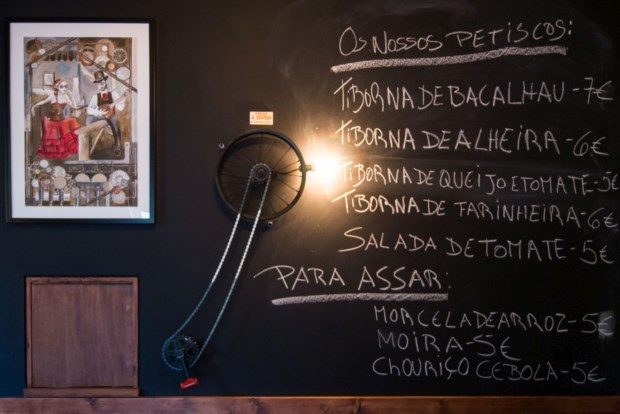 Os Nossos PETISCOS:
TIBORNA DE BACALHAU - 7€
TIBORNA DE ALHEIRA - 6€
TIBORNA DE QUEIJO E TOMATE - 5€
TIBORNA DE FARINHEIRA - 6€
SALADA DE TOMATE - 5€
PARA ASSAR:
MORCELA DE ARROZ - 5€
MOIRA - 5€
CHOURIÇO CEBOLA - 5€